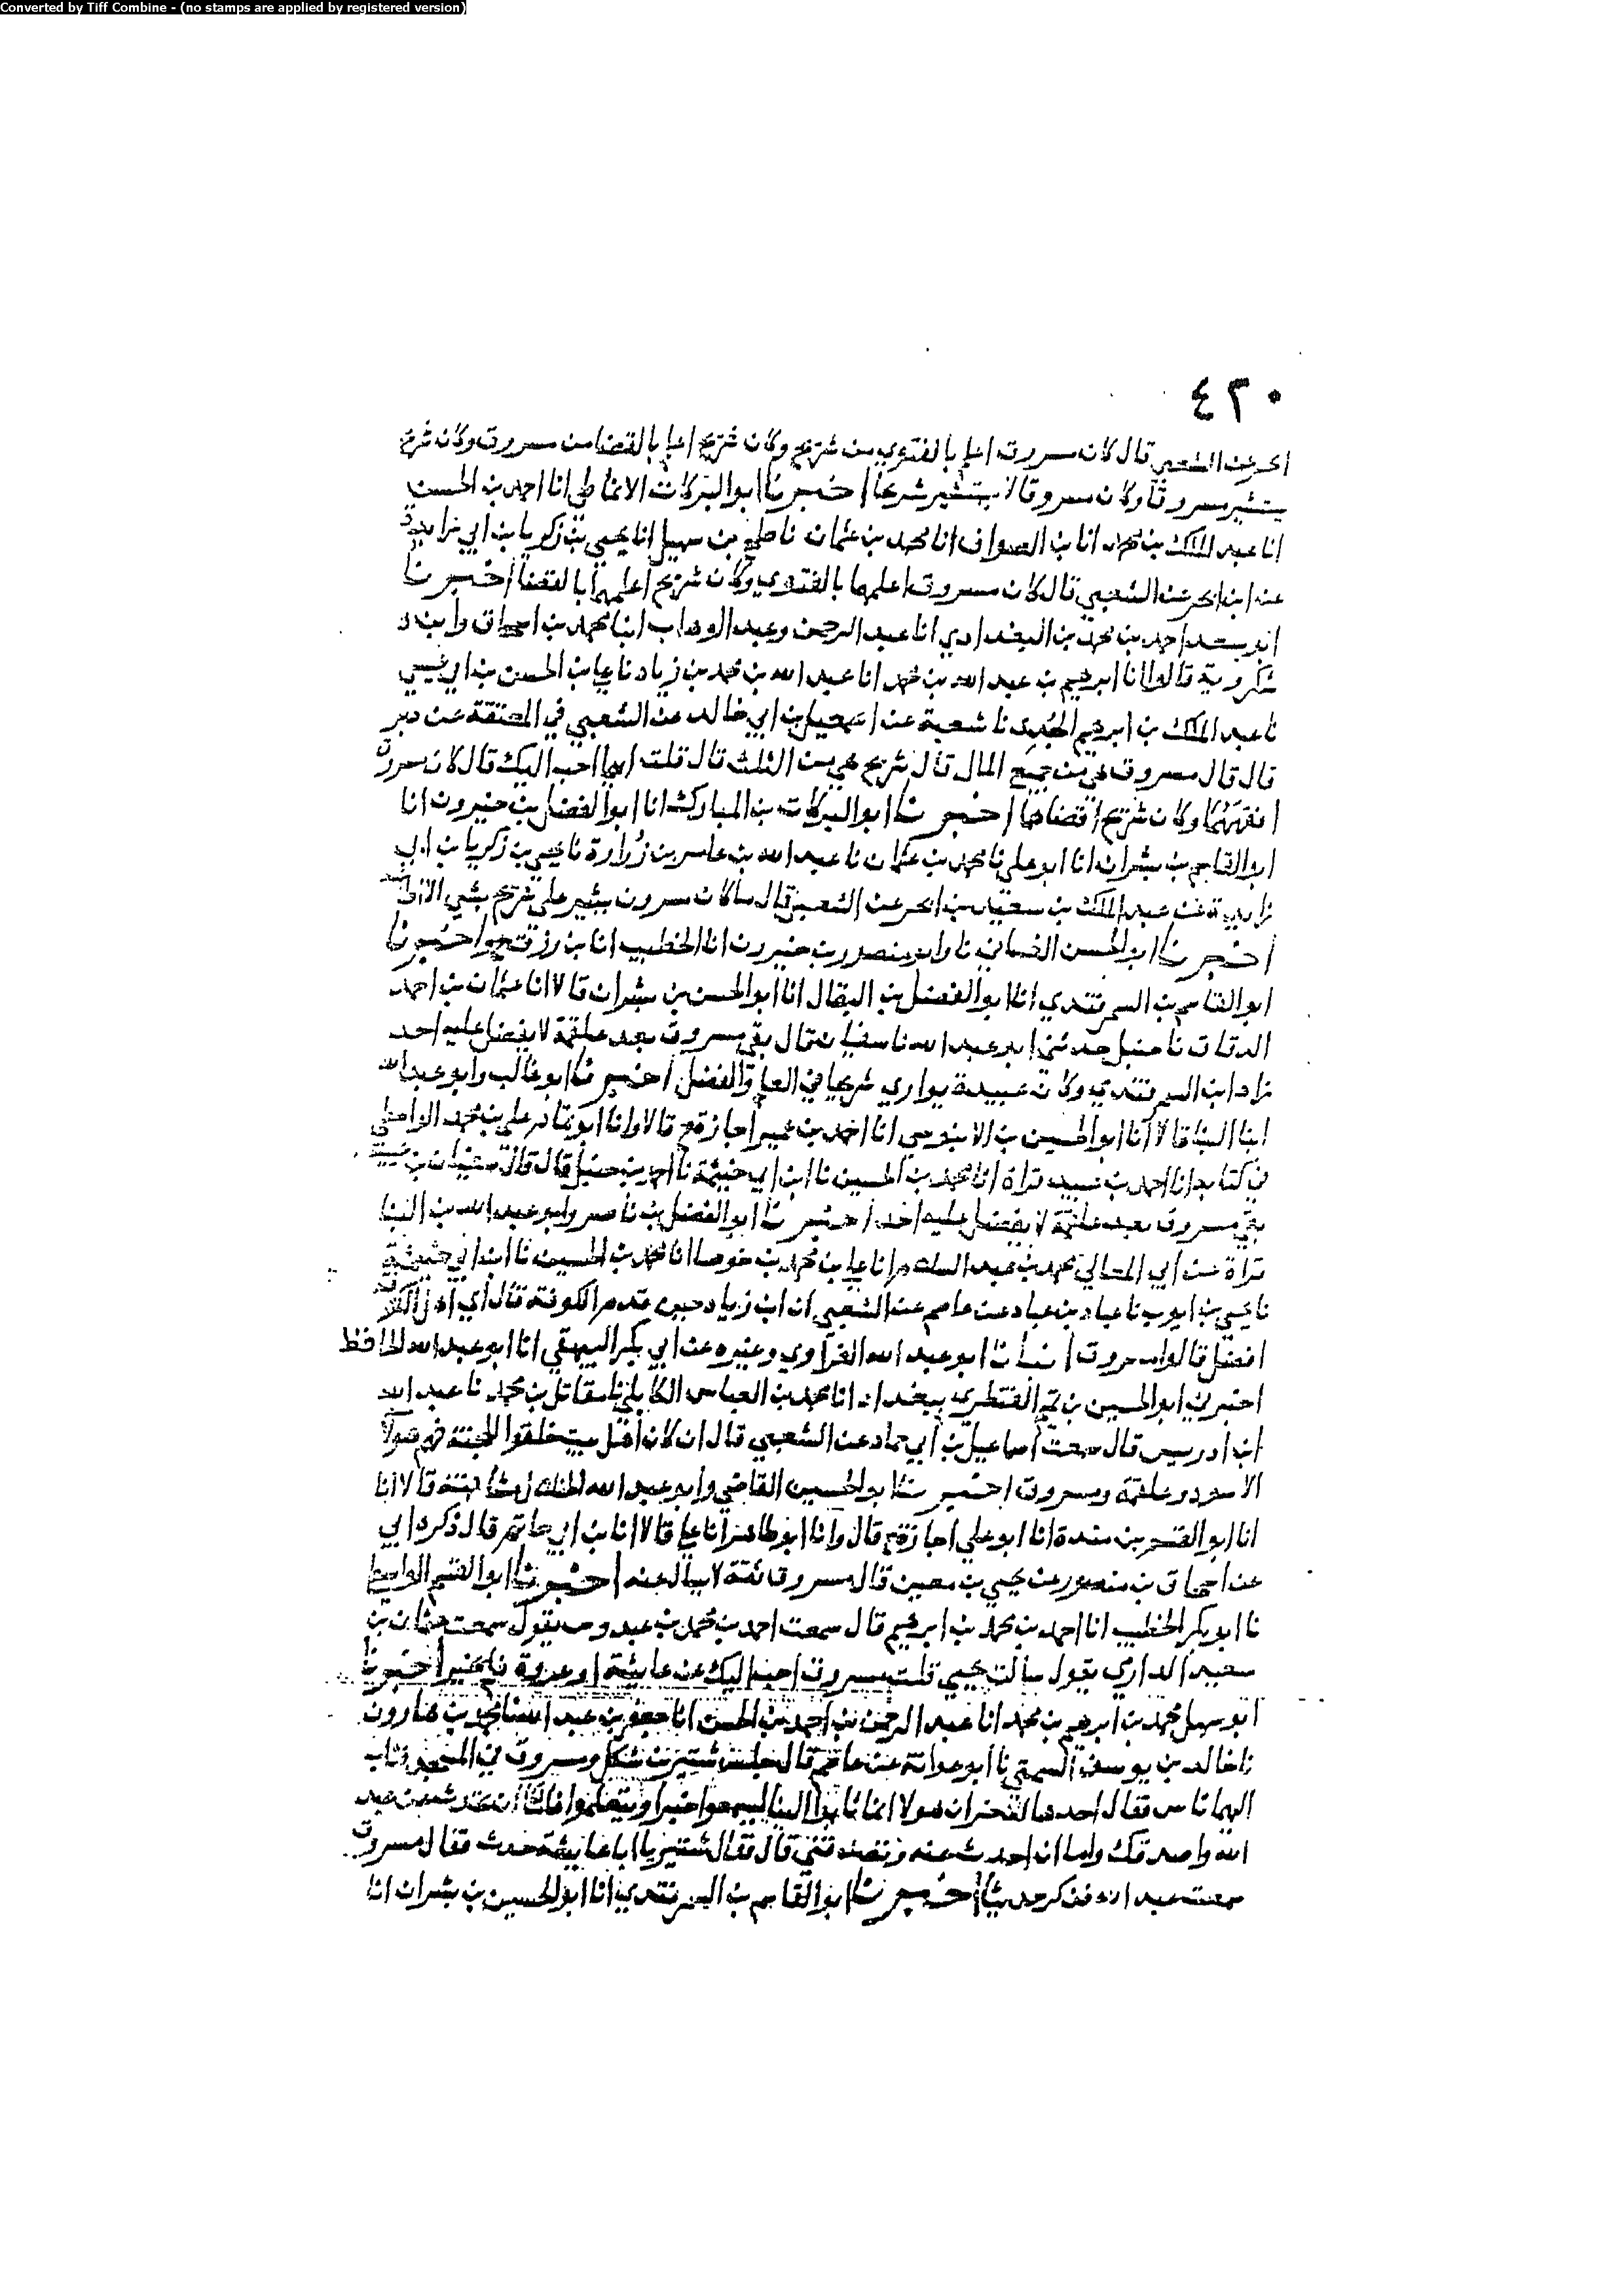 Converted by Tiff Combine - (no stamps are applied by registered version)
٤٣٠
ابحر عن الشعبي قال كان مسروق اعلم بالفتوى من شريح وكان شريح اعلم بالقضا من مسروق وكان شريح
يستشير مسروقا وكان مسروقا لا يستشير شريحا اخبرنا ابو البركات الانماطي انا احمد بن الحسن
انا عبد الملك بن محمد انا بن الصواف انا محمد بن عثمان نا بن سهيل انا يحيى بن زكريا بن ابي زايدة
عن ابن ابحر عن الشعبي قال كان مسروق اعلمهما بالفتوى وكان شريح اعلمهما بالقضا اخبرنا
ابو سعد احمد بن محمد بن البغدادي انا عبد الرحمن وعبد الوهاب ابنا محمد بن اسحاق وابن د
شكروية قالوا انا ابرهيم بن عبد الله بن محمد انا عبد الله بن محمد بن زياد نا علي بن الحسن بن ابي عيسى
نا عبد الملك بن ابرهيم الجدي نا شعبة عن اسمعيل بن ابي خالد عن الشعبي في المعتقة عن دبر
قال قال مسروق هي من جميع المال قال شريح هي من الثلث قال قلت ايهما احب اليك قال كان مسروق
افقههما وكان شريح اقضاهما اخبرنا ابو البركات بن المبارك انا ابو الفضل بن خيرون انا
ابو القاسم بن بشران انا ابو علي نا محمد بن عثمان نا عبد الله بن عامر بن زرارة نا يحيى بن زكريا بن ابي
زايدة عن عبد الملك بن سعيد بن ابحر عن الشعبي قال ما كان مسروق يشير على شريح بشي الا
اخبرنا ابو الحسن الغساني نا وابو منصور بن خيرون انا الخطيب انا بن رزق ح واخبرنا
ابو القاسم بن السمرقندي انا ابو الفضل بن البقال انا ابو الحسن بن بشران قالا انا عثمان بن احمد
الدقاق نا حنبل حدثني ابو عبد الله نا سفيان قال بقي مسروق بعد علقمة لا يفضل عليه احد
زاد ابن السمرقندي وكان عبيدة يوازي شريحا في العلم والفضل اخبرنا ابو غالب وابو عبد الله
ابنا البنا قالا انا ابو الحسين بن الابنوسي انا احمد بن عبيد اجازة ح قالا وانا ابو تمام علي بن محمد الواسطي
في كتابه انا احمد بن عبيد قراة انا محمد بن الحسين نا ابن ابي خيثمة نا احمد بن حنبل قال قال سفيان بن عيينة
بقي مسروق بعد علقمة لا يفضل عليه احد اخبرنا ابو الفضل بن ناصر وابو عبد الله بن البنا
قراة عن ابي المعالي محمد بن عبد السلام انا علي بن محمد بن خزفا انا محمد بن الحسين نا ابن ابي خيثمة
نا يحيى بن ايوب نا عباد بن عباد عن عاصم عن الشعبي ان ابن زياد حين قدم الكوفة قال اي اهل الكوفة
افضل قالوا مسروق انبانا ابو عبد الله الفراوي وغيره عن ابي بكر البيهقي انا ابو عبد الله الحافظ
اخبرني ابو الحسين بن تميم القنطري ببغداد انا محمد بن العباس الكابلي نا مقاتل بن محمد نا عبد الله
ابن ادريس قال سمعت اسماعيل بن ابي حماد عن الشعبي قال ان كان اهل بيت خلقوا للجنة فهم هولا
الاسود وعلقمة ومسروق اخبرنا ابو الحسين القاضي وابو عبد الله قالا انا
انا ابو القسم بن مندة انا ابو علي اجازة ح قال وانا ابو طاهر انا علي قالا انا بن ابي حاتم قال ذكره ابي
عن اسحاق بن منصور عن يحيى بن معين قال مسروق ثقة لا يسال عنه اخبرنا ابو القسم الواسطي
نا ابو بكر الخطيب انا احمد بن محمد بن ابرهيم قال سمعت احمد بن محمد بن عبدوس يقول سمعت عثمان بن
سعيد الداري يقول سالت يحيى قلت مسروق احب اليك عن عايشة او عروة فلم يخير اخبرنا
ابو سهل محمد بن ابرهيم بن محمد انا عبد الرحمن بن احمد بن الحسن انا جعفر بن عبد الله نا محمد بن هارون
نا خالد بن يوسف السمتي نا ابو عوانة عن عاصم قال جلس شتير بن شكل ومسروق في المسجد فثاب
اليهما ناس فقال احدهما للاخر ان هولا انما ثابوا الينا ليسمعوا خيرا ويتعلموا فاما ان تحدث عن عبد
الله واصدقك واما ان احدث عنه وتصدقني قال فقال شتير يا ابا عايشة حدث فقال مسروق
سمعت عبد الله فذكر حديثا اخبرنا ابو القاسم بن السمرقندي انا ابو الحسين بن بشران انا